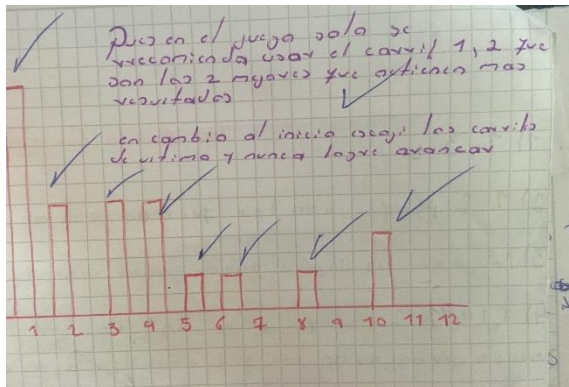 Pues en el juego solo se
rrecomienda usar el carril 1, 2 que
son las 2 mejores que obtienen mas
resultados
en cambio al inicio escoji los carriles
de ultimo y nunca logre avanzar
1 2 3 4 5 6 7 8 9 10 11 12